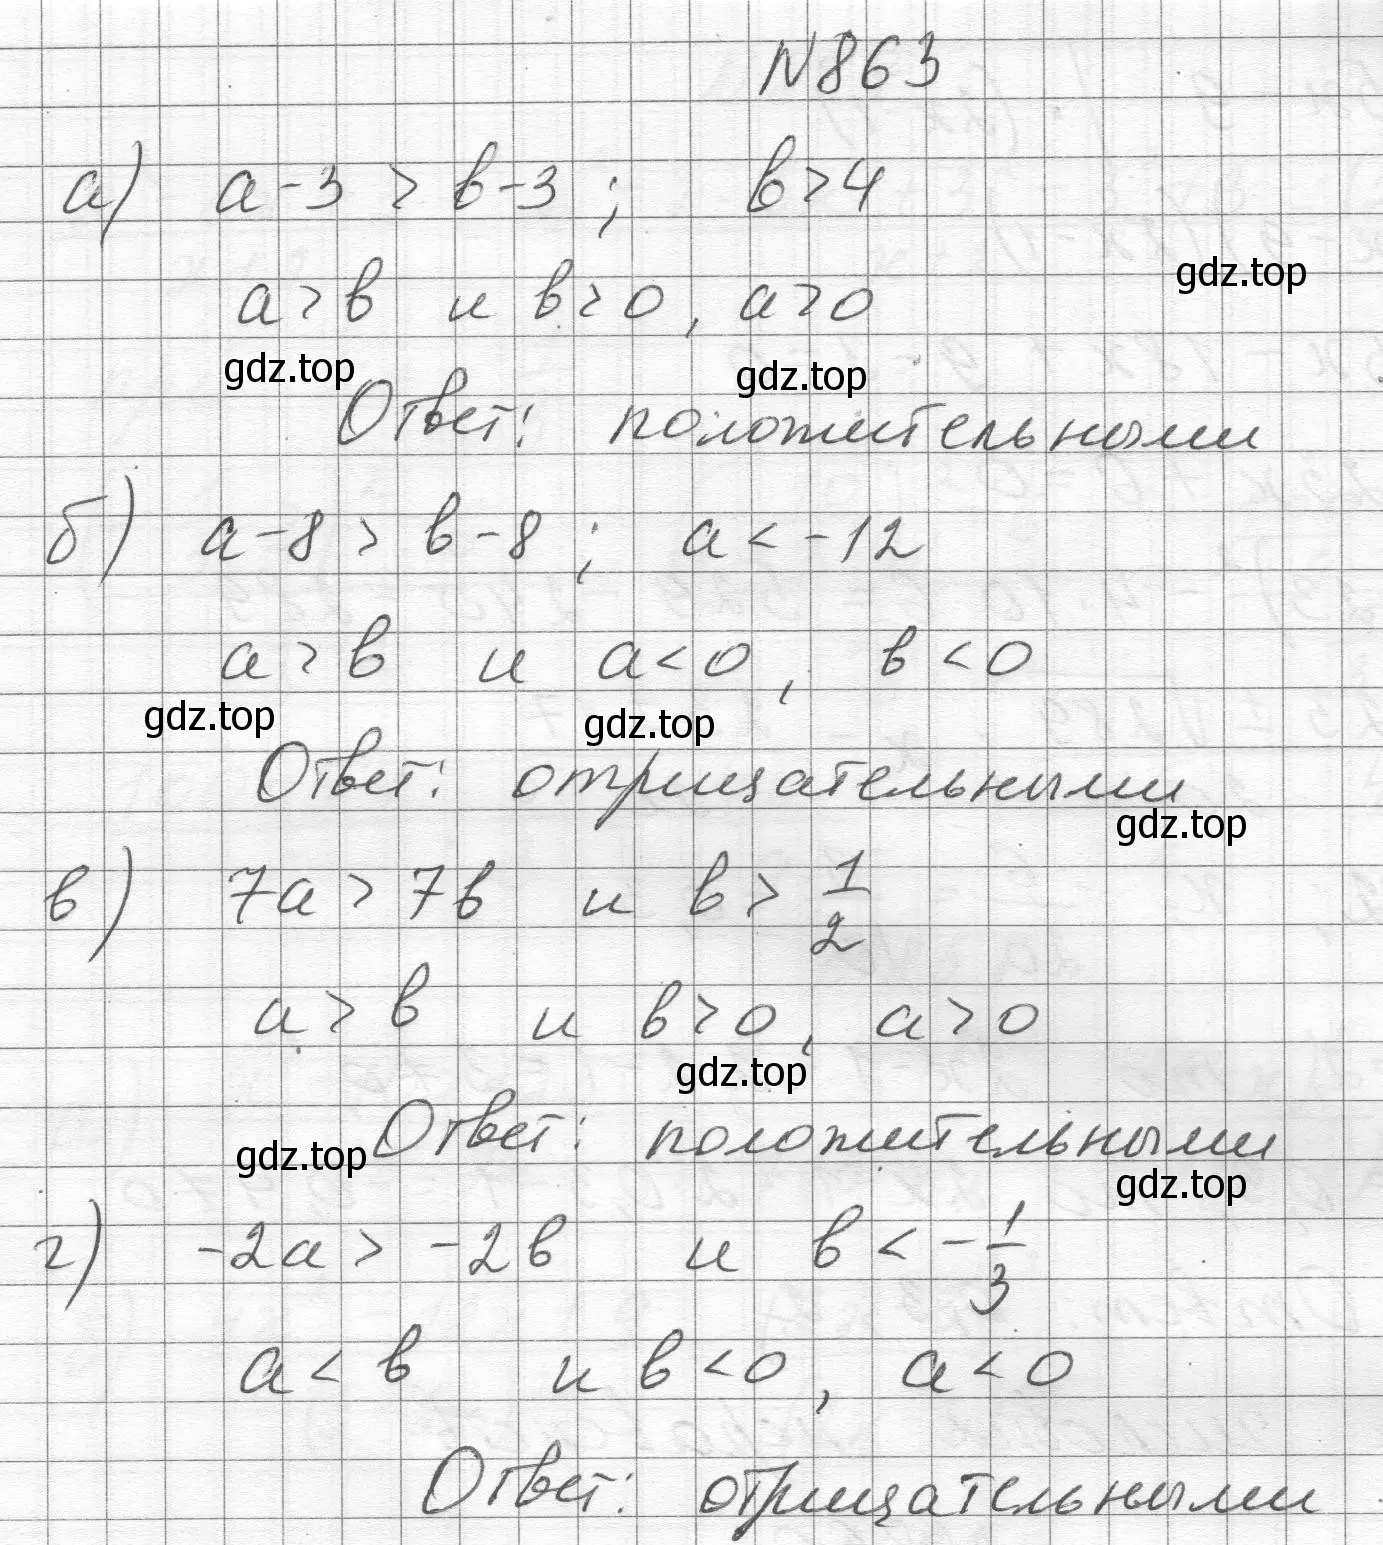 N863
а) a-3 > b-3 ; b>4
gdz.top
a>b и b>0, a>0
gdz.top gdz.top
Ответ: положительными
б) a-8 > b-8 ; a < -12
a > b и a<0, b<0
gdz.top gdz.top
Ответ: отрицательными
gdz.top
в) 7a > 7b и b > 1/2
a > b и b>0, a>0
gdz.top
Ответ: положительными
gdz.top
gdz.top
г) -2a > -2b и b < -1/3
a < b и b<0, a<0
Ответ: отрицательными